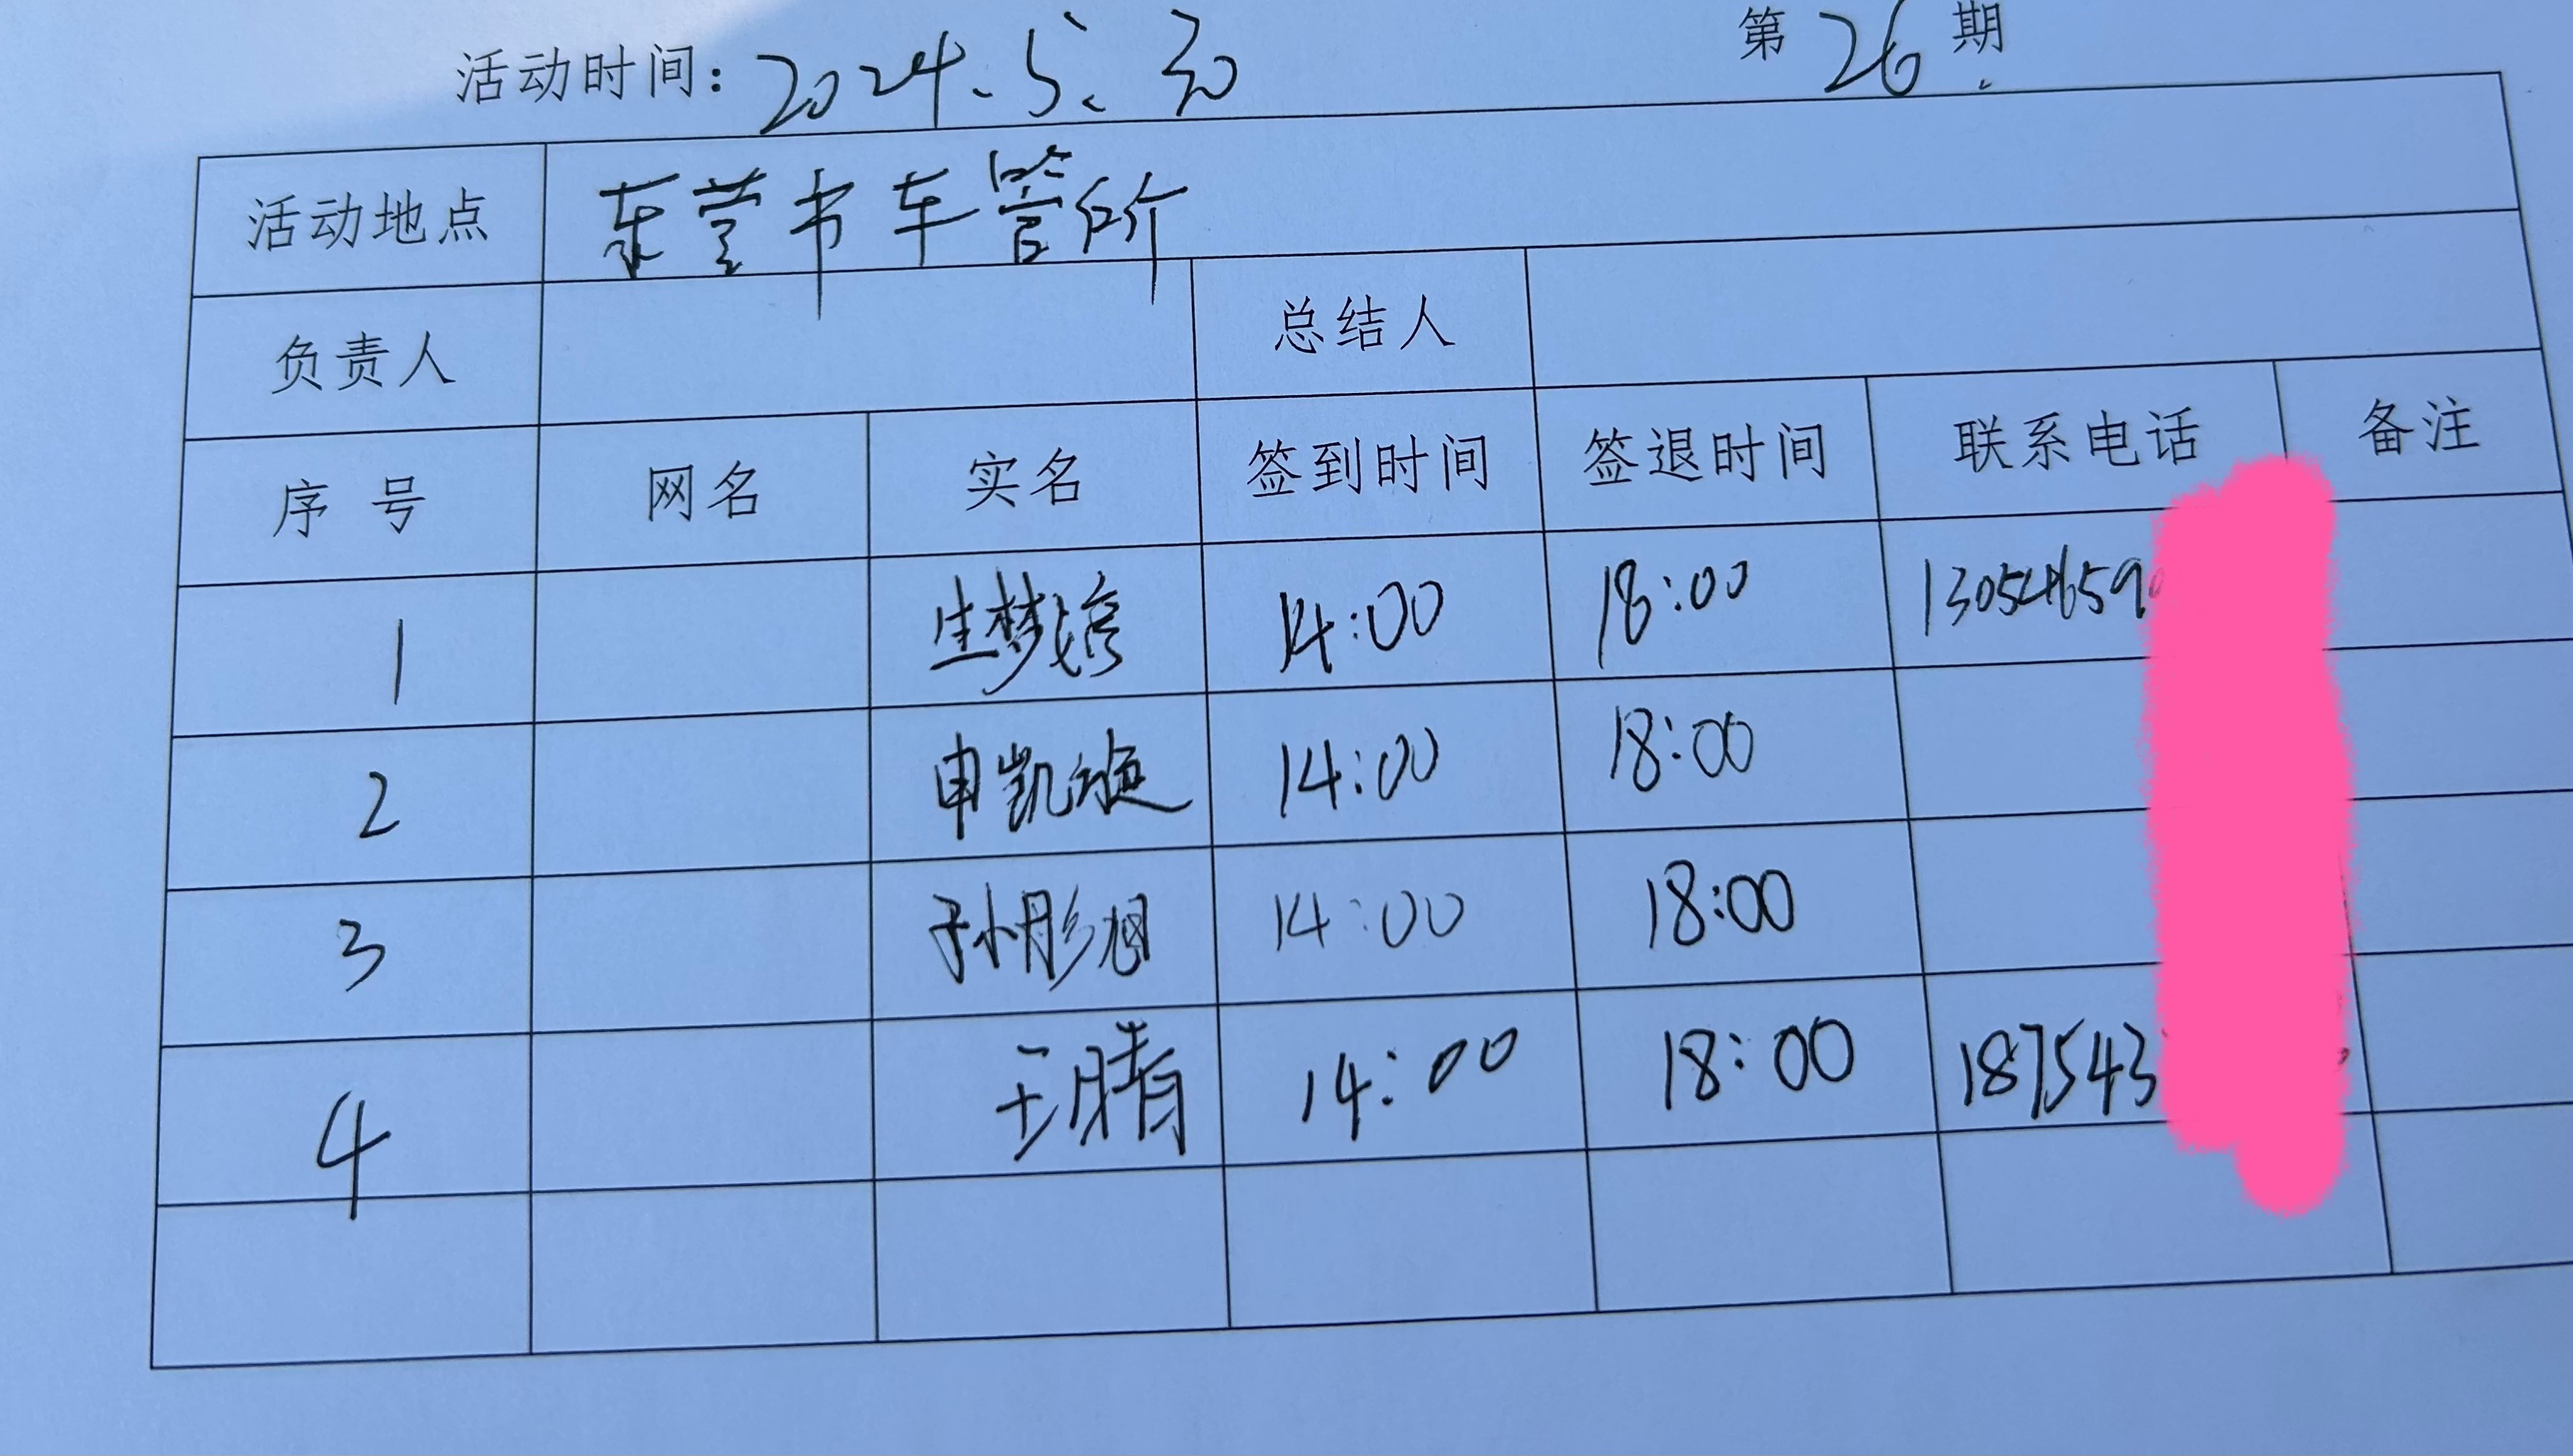 活动时间：2024.5.30 第26期
活动地点 东营市车管所
负责人 总结人
序号 网名 实名 签到时间 签退时间 联系电话 备注
1 生梦婷 14:00 18:00 13054659
2 申凯旋 14:00 18:00
3 孙彤旭 14:00 18:00
4 王晴 14:00 18:00 187543